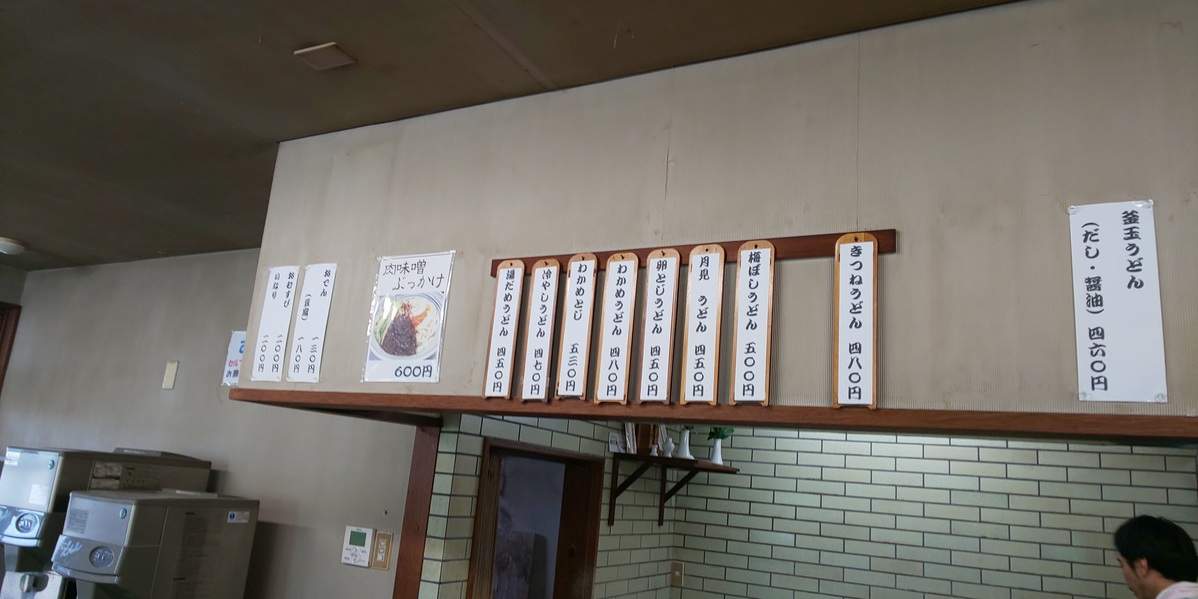 釜玉うどん
(だし・醤油) 四六〇円
きつねうどん 四八〇円
梅ぼしうどん 五〇〇円
月見 うどん 四五〇円
卵とじうどん 四五〇円
わかめうどん 四八〇円
わかめとじ 五三〇円
冷やしうどん 四七〇円
湯だめうどん 四五〇円
肉味噌
ぶっかけ
600円
おでん 一三〇円
(豆腐) 一八〇円
おむすび 二〇〇円
いなり 二〇〇円